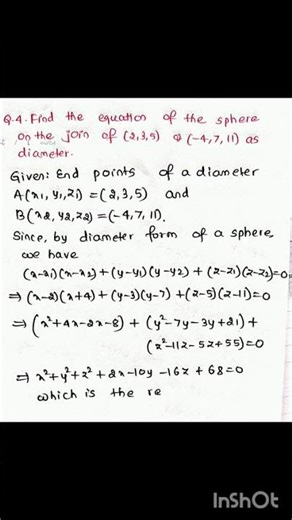 Q.4. Find the equation of the sphere
on the join of (2,3,5) & (-4,7,11) as
diameter.
Given: End points of a diameter
A(x₁, y₁, z₁) = (2,3,5) and
B(x₂, y₂, z₂) = (-4,7,11).
Since, by diameter form of a sphere
we have
(x-x₁)(x-x₂) + (y-y₁)(y-y₂) + (z-z₁)(z-z₂)=0
⇒ (x-2)(x+4) + (y-3)(y-7) + (z-5)(z-11)=0
⇒ (x²+4x-2x-8) + (y²-7y-3y+21) +
(z²-11z-5z+55)=0
⇒ x²+y²+z²+2x-10y-16z+68=0
which is the re
InShOt